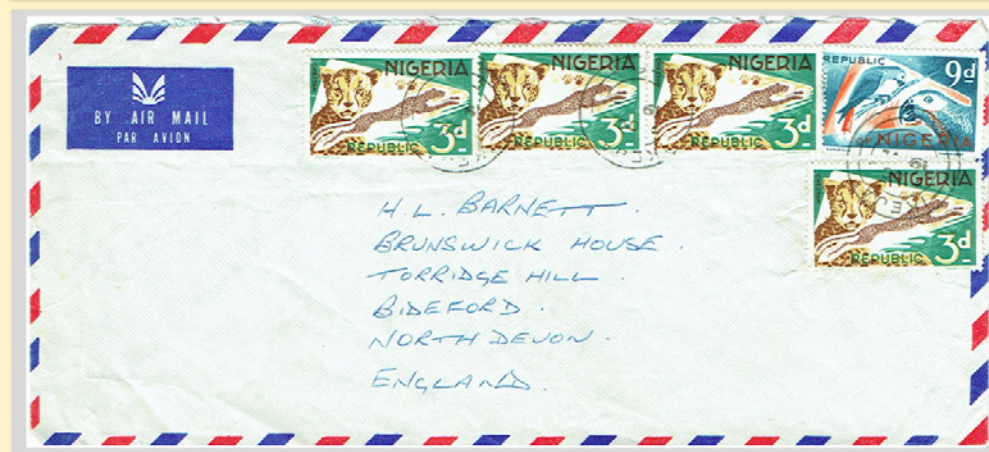 BY AIR MAIL
PAR AVION
NIGERIA
3d
REPUBLIC
NIGERIA
3d
REPUBLIC
NIGERIA
3d
REPUBLIC
REPUBLIC
9d
NIGERIA
NIGERIA
3d
REPUBLIC
H. L. BARNETT.
BRUNSWICK HOUSE.
TORRIDGE HILL.
BIDEFORD.
NORTH DEVON.
ENGLAND.